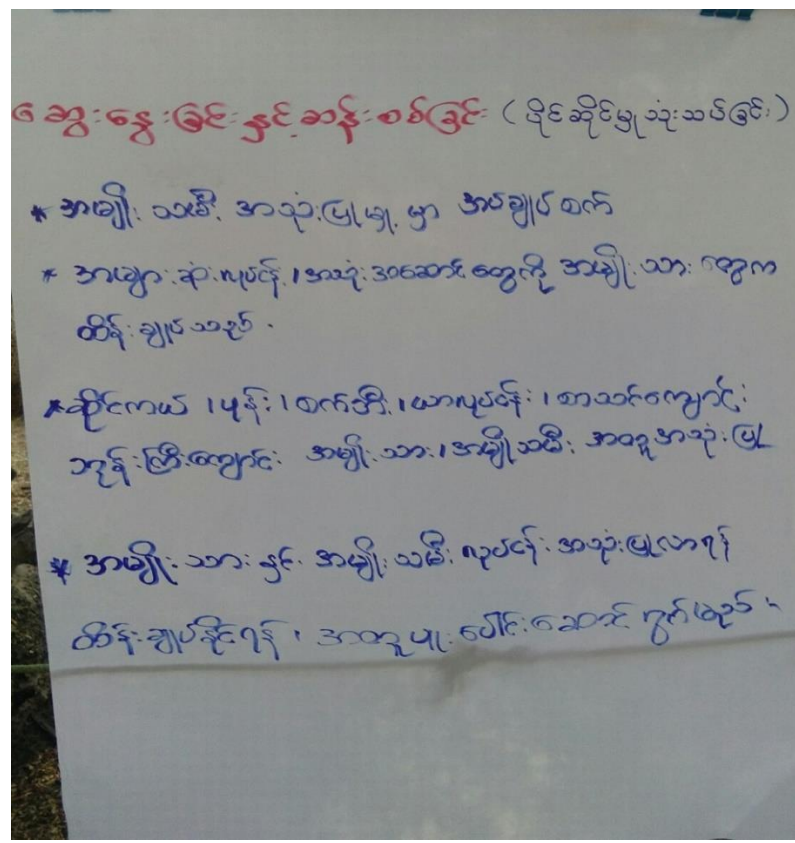 ဆွေးနွေးခြင်းနှင့်ဆန်းစစ်ခြင်း (ပိုင်ဆိုင်မှုသုံးသပ်ခြင်း)
* အမျိုးသမီး အသုံးပြုမှု မှာ အပ်ချုပ်စက်
* အများဆုံးလုပ်ငန်း၊ အသုံးအဆောင်တွေကို အမျိုးသားတွေက
ထိန်းချုပ်သည်။
* ဆိုင်ကယ်၊ ဖုန်း၊ စက်ဘီး၊ ယာလုပ်ငန်း၊ စာသင်ကျောင်း
ဘုန်းကြီးကျောင်း အမျိုးသား၊ အမျိုးသမီး အတူအသုံးပြု
* အမျိုးသားနှင့် အမျိုးသမီး လုပ်ငန်းအသုံးပြုလာရန်
ထိန်းချုပ်နိုင်ရန်၊ အတူပူးပေါင်းဆောင်ရွက်မည်။